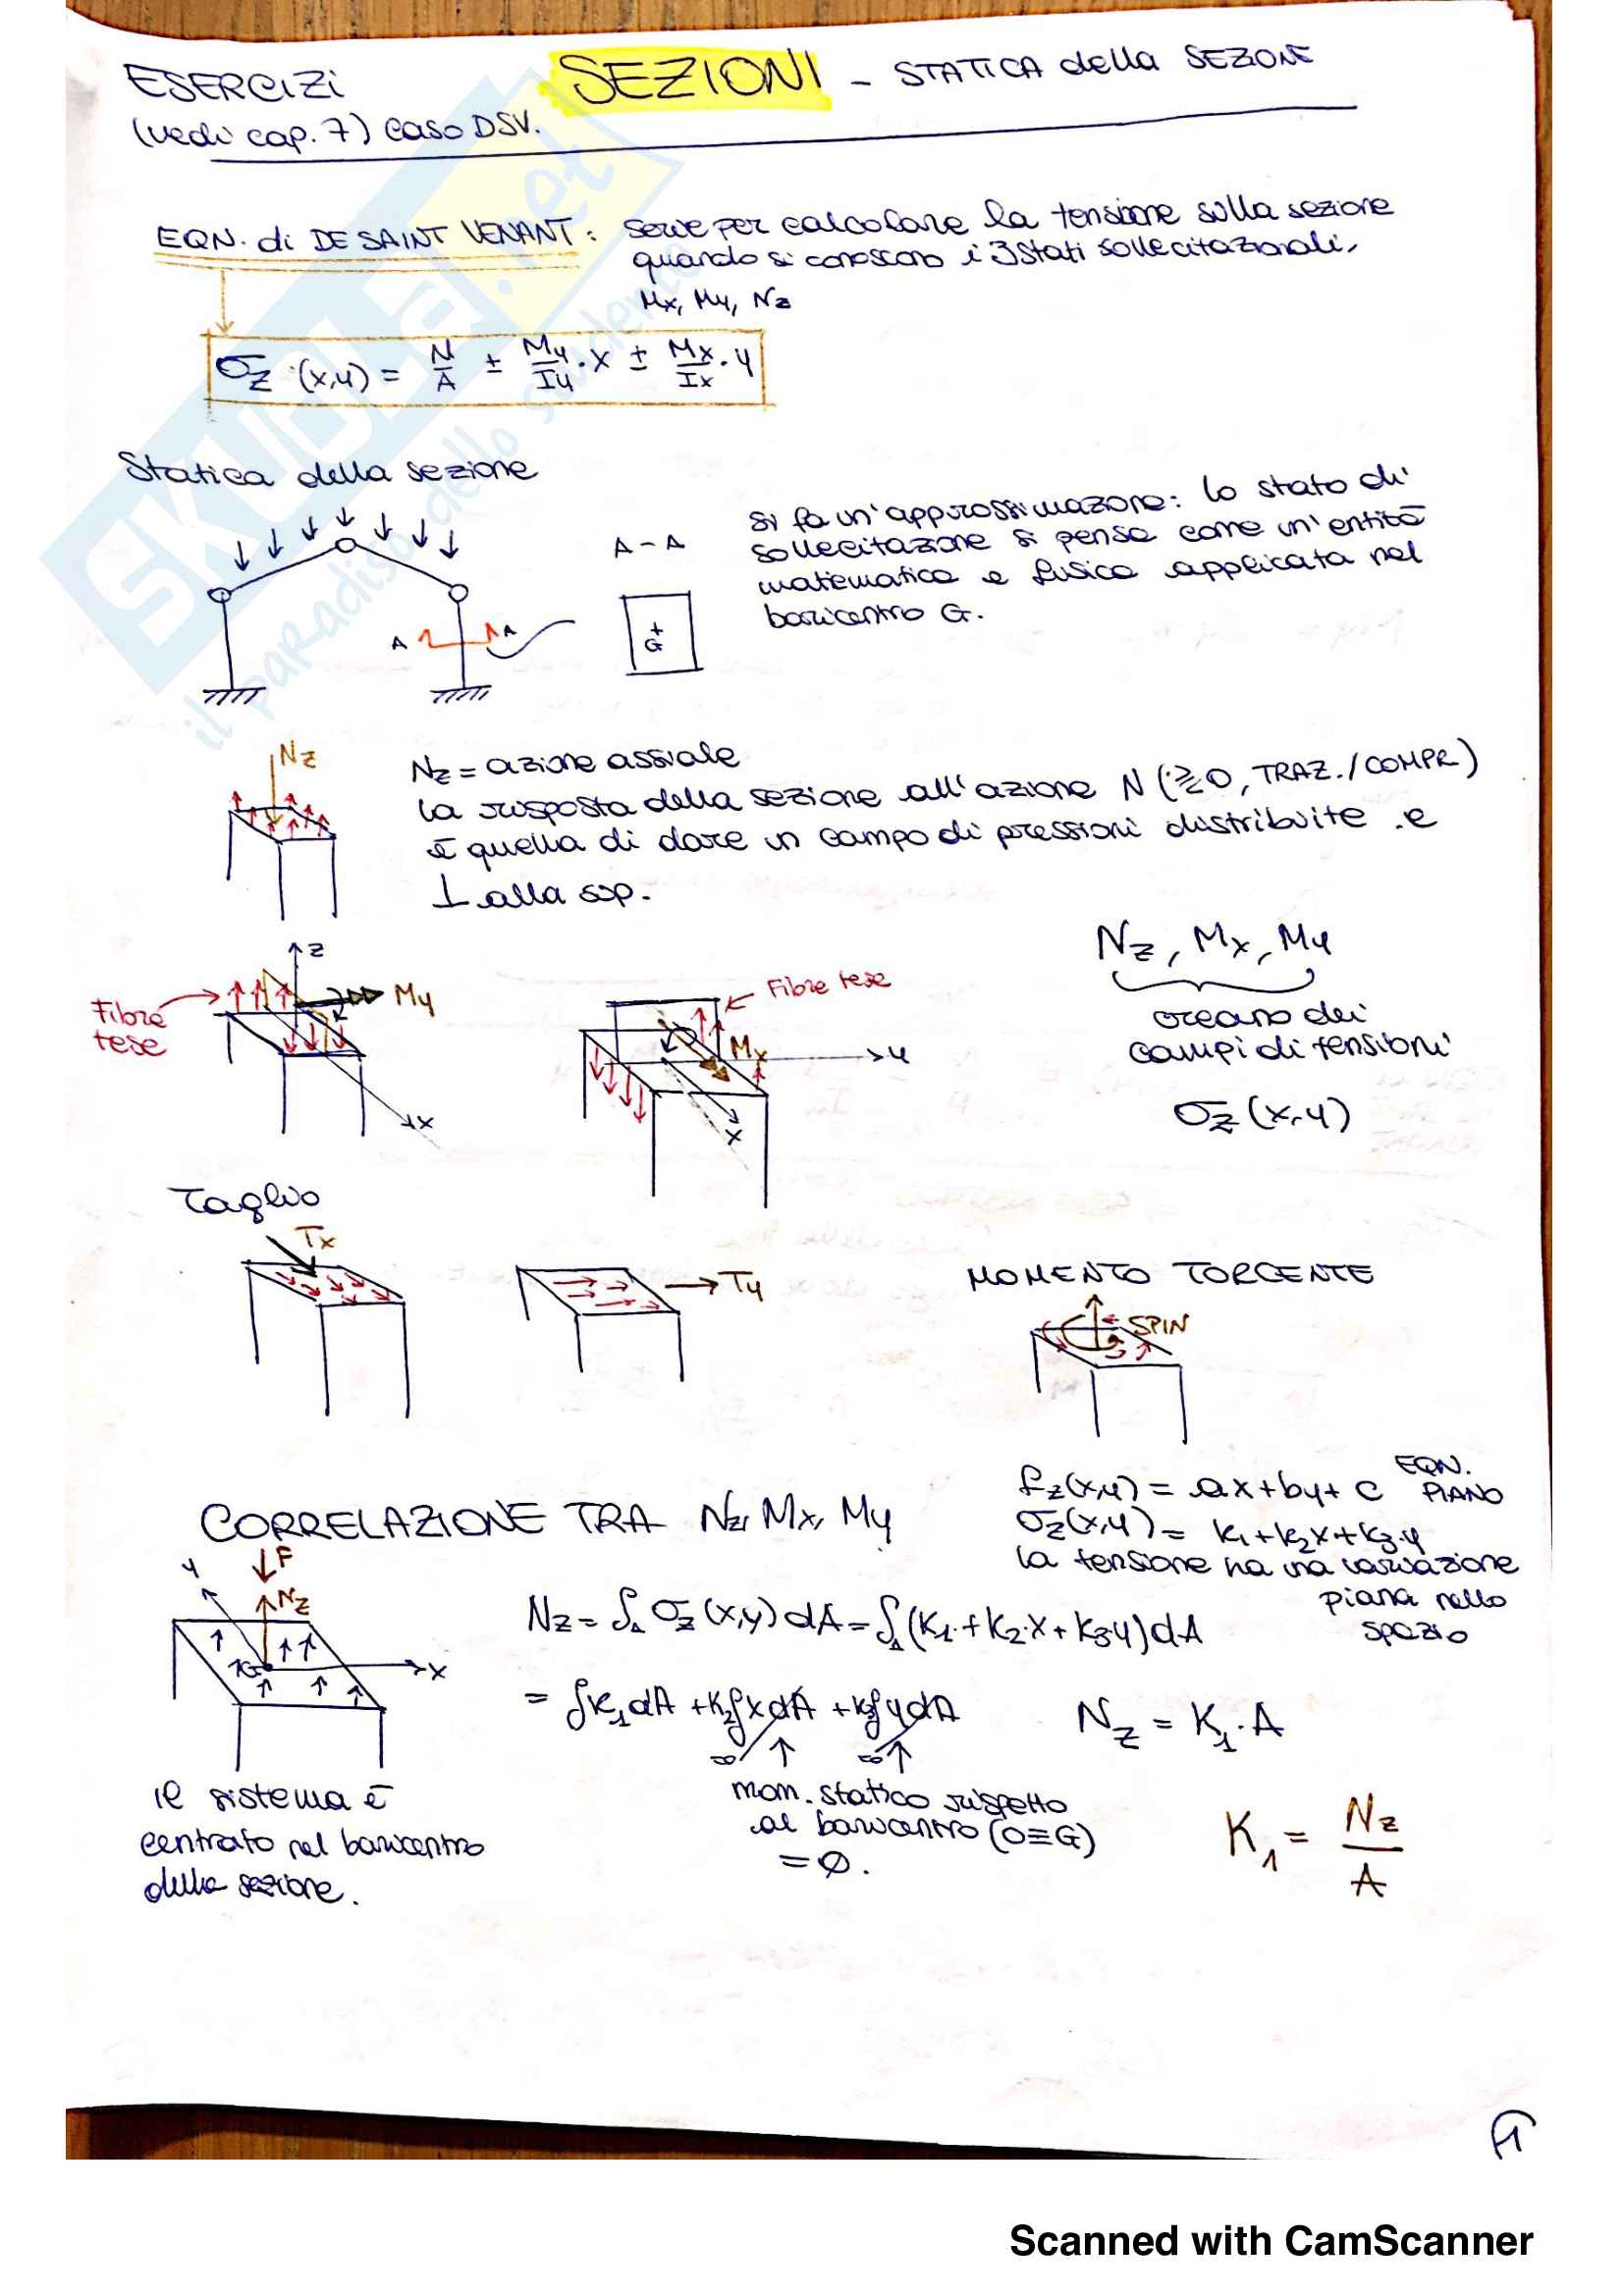 ESERCIZI
SEZIONI - STATICA della SEZIONE
(vedi cap. 7) caso DSV.
EQN. di DE SAINT VENANT: serve per calcolare la tensione sulla sezione
quando si conoscono i 3 stati sollecitazionali,
Mx, My, Nz
σz (x,y) = N/A ± My/Iy · x ± Mx/Ix · y
Statica della sezione
A-A
Si fa un'approssimazione: lo stato di
sollecitazione si pensa come un'entità
matematica e fisica applicata nel
baricentro G.
A A
G
Nz
Nz = azione assiale
la risposta della sezione all'azione N (≥0, TRAZ./COMPR)
è quella di dare un campo di pressioni distribuite e
⊥ alla sup.
Nz, Mx, My
creano dei
campi di tensioni
σz (x,y)
z
My
Fibre
tese
x
Fibre tese
Mx
y
x
Taglio
Tx
Ty
MOMENTO TORCENTE
SPIN
CORRELAZIONE TRA Nz, Mx, My
fz(x,y) = ax+by+c EQN. PIANO
σz(x,y) = k1+k2x+k3·y
la tensione ha una variazione
piana nello
spazio
F
y
Nz
G
x
Nz = ∫A σz (x,y) dA = ∫A (k1·+k2·x+k3y) dA
= ∫k1dA + k2∫xdA + k3∫ydA
Nz = K1·A
=0 =0
mom. statico rispetto
al baricentro (O≡G)
= Ø.
K1 = Nz/A
il sistema è
centrato nel baricentro
della sezione.
1
Scanned with CamScanner
SKUOLA.net
il paradiso dello studente